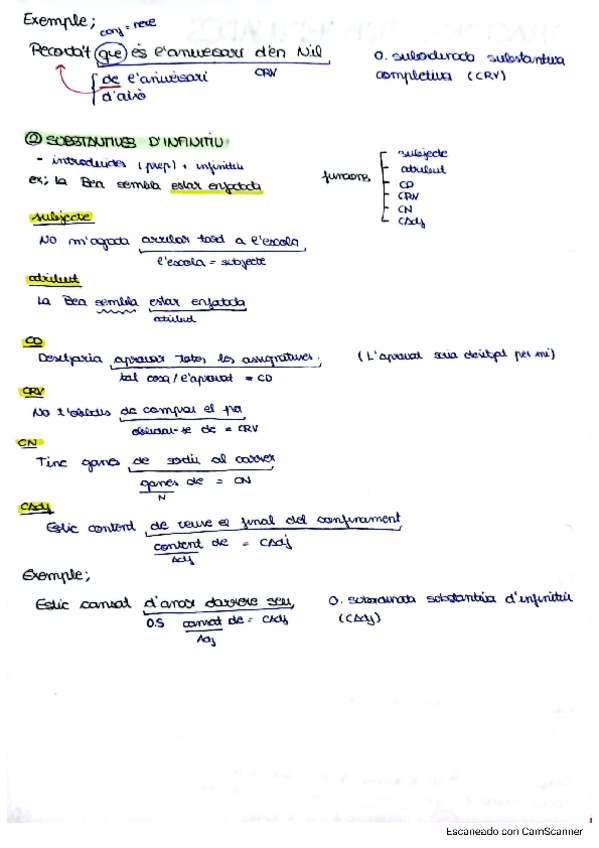 Exemple;
conj = nexe
Recorda't que és l'aniversari d'en Nil
CRV
O. subordinada substantiva
completiva (CRV)
de l'aniversari
d'això
② SUBSTANTIVES D'INFINITIU
- introduïdes (prep) + infinitiu
ex; La Bea sembla estar enfadada
funcions
- subjecte
- atribut
- CD
- CRV
- CN
- CAdj
subjecte
No m'agrada arribar tard a l'escola
l'escola = subjecte
atribut
La Bea sembla estar enfadada
atribut
CD
Desitjaria aprovar totes les assignatures. (L'aprovat seria desitjat per mi)
tal cosa / l'aprovat = CD
CRV
No t'oblidis de comprar el pa
oblidar-se de = CRV
CN
Tinc ganes de sortir al carrer
ganes de = CN
N
CAdj
Estic content de veure el final del confinament
content de = CAdj
Adj
Exemple;
Estic cansat d'anar darrere seu, O. subordinada substantiva d'infinitiu
O.S cansat de = CAdj (CAdj)
Adj
Escaneado con CamScanner